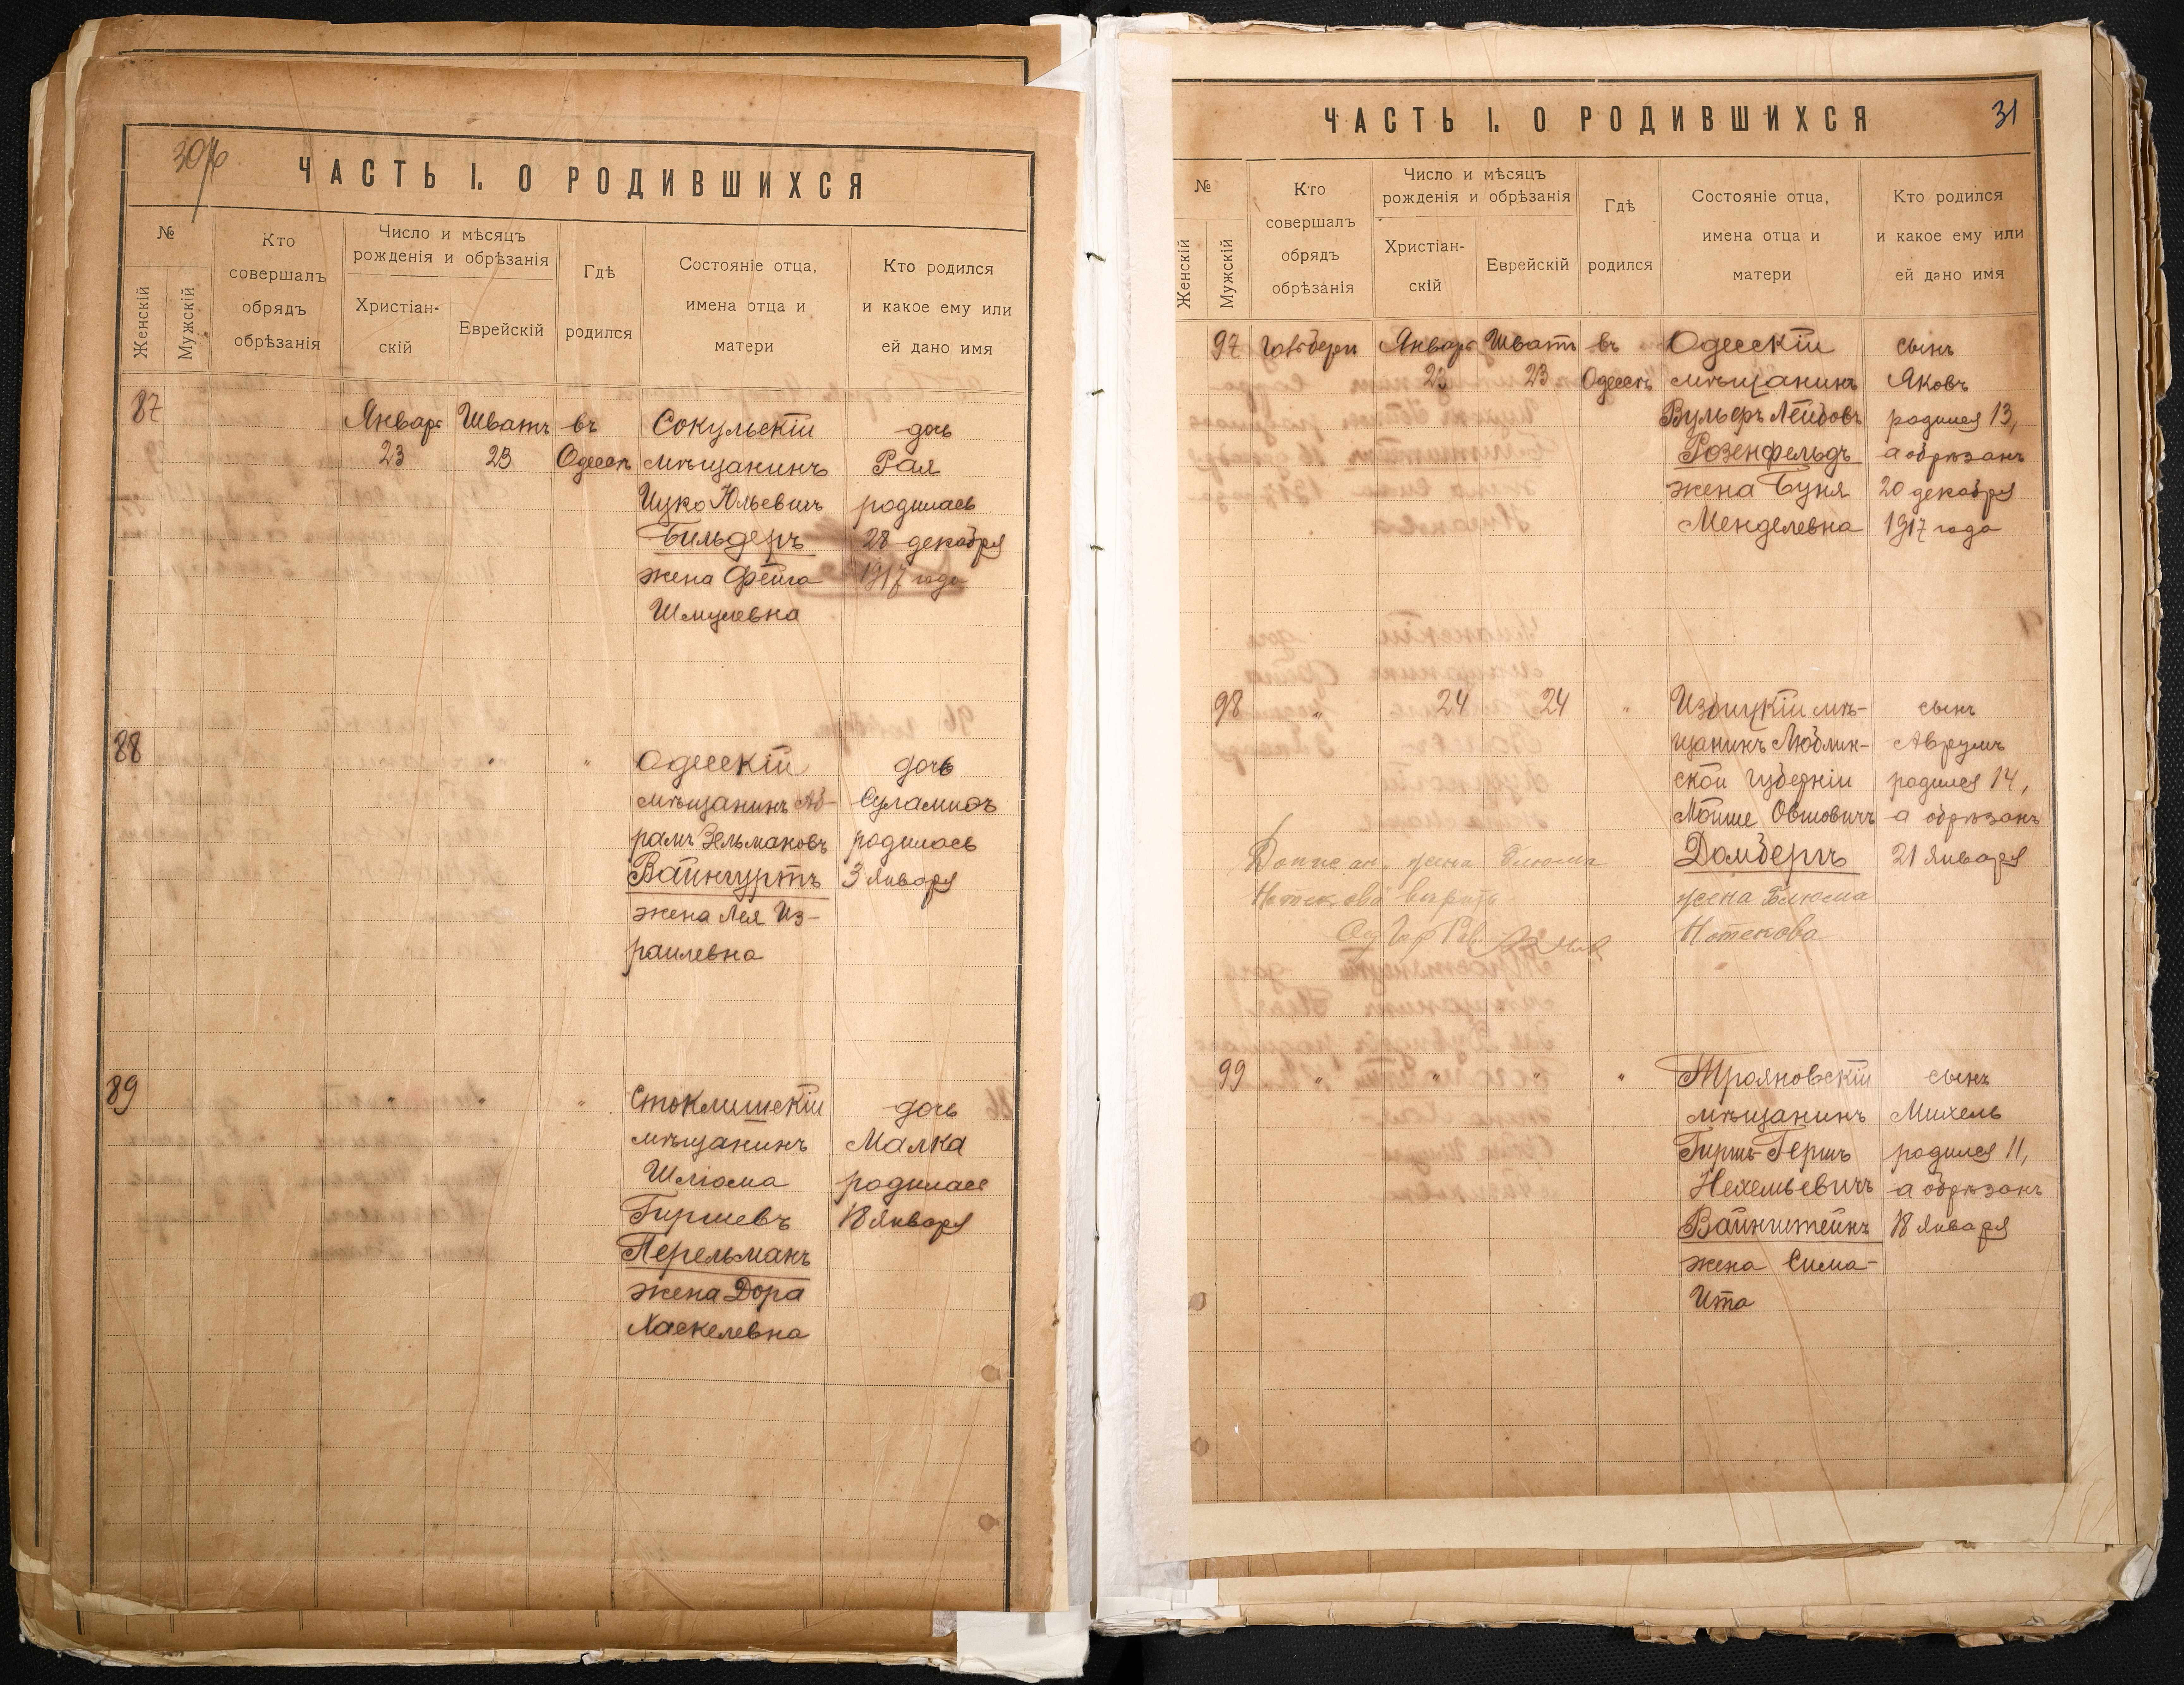 30об
ЧАСТЬ I. О РОДИВШИХСЯ
№
Женскій
Мужскій
Кто совершалъ обрядъ обрѣзанія
Число и мѣсяцъ рожденія и обрѣзанія
Христіан-
скій
Еврейскій
Гдѣ родился
Состояніе отца, имена отца и матери
Кто родился и какое ему или ей дано имя
87 Январь Шватъ въ Сокульскій дочь
23 23 Одессѣ мѣщанинъ Рая
Ицко Юльевичъ родилась
Бильдеръ 28 декабря
жена Фейга 1917 года
Шмулевна
88 " " Одесскій дочь
мѣщанинъ Аб- Суламифь
рамъ Зельмановъ родилась
Вайнгуртъ 3 января
жена Лея Из-
раилевна
89 " " " Стоклишскій дочь
мѣщанинъ Малка
Шліома родилась
Гиршевъ 18 января
Перельманъ
жена Дора
Хаскелевна
31
ЧАСТЬ I. О РОДИВШИХСЯ
№
Женскій
Мужскій
Кто совершалъ обрядъ обрѣзанія
Число и мѣсяцъ рожденія и обрѣзанія
Христіан-
скій
Еврейскій
Гдѣ родился
Состояніе отца, имена отца и матери
Кто родился и какое ему или ей дано имя
97 Январь Шватъ въ Одесскій сынъ
23 23 Одессѣ мѣщанинъ Яковъ
Вульфъ Лейбовъ родился 13,
Розенфельдъ а обрѣзанъ
жена Буня 20 декабря
Менделевна 1917 года
98 " 24 24 " Избицкій мѣ- сынъ
щанинъ Люблин- Аврумъ
ской губерніи родился 14,
Мойше Овшовичъ а обрѣзанъ
Домбергъ 21 января
жена Блюма
Нотекова
жена Блюма
Нотекова
99 " " " " Трояновскій сынъ
мѣщанинъ Михель
Гиршъ-Гершъ родился 11,
Нехемьевичъ а обрѣзанъ
Вайнштейнъ 18 января
жена Сима-
Ита